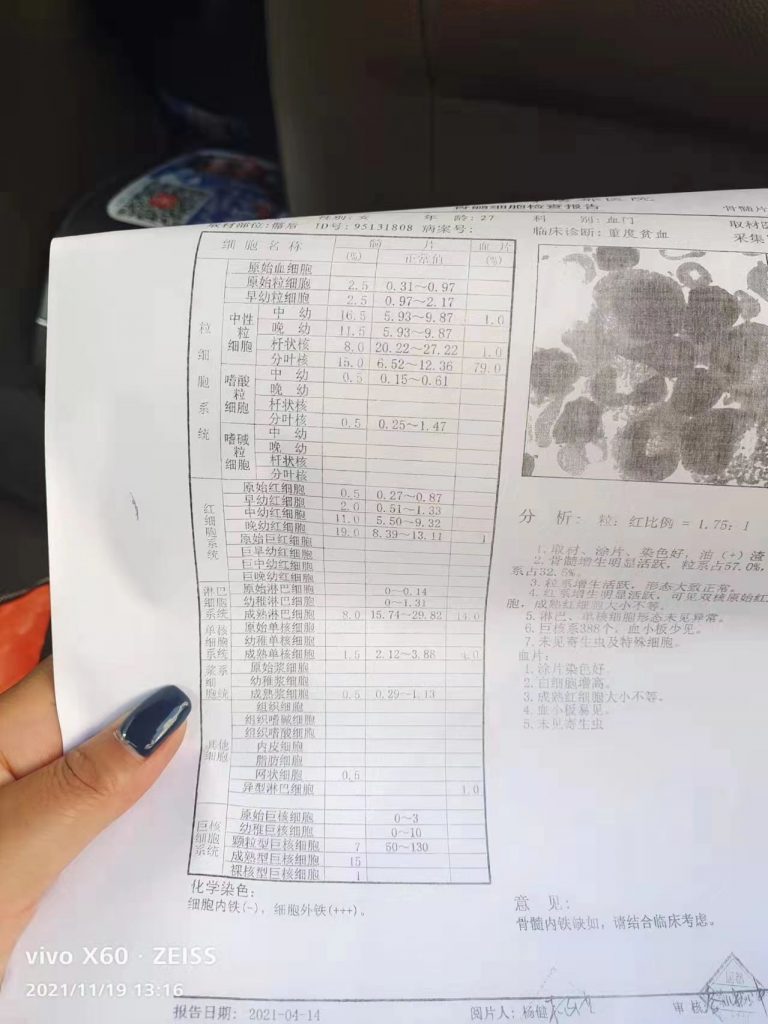 骨髓细胞检查报告
骨髓片
性别: 女 年 龄: 27 科 别: 血门
取材部位: 髂后 ID号: 95131808 病案号:
临床诊断: 重度贫血
细 胞 名 称 髓 片 血 片
(%) 正常值 (%)
粒细胞系统
原始血细胞
原始粒细胞 2.5 0.31~0.97
早幼粒细胞 2.5 0.97~2.17
中性粒细胞
中 幼 16.5 5.93~9.87 1.0
晚 幼 11.5 5.93~9.87
杆状核 8.0 20.22~27.22 1.0
分叶核 15.0 6.52~12.36 79.0
嗜酸粒细胞
中 幼 0.5 0.15~0.61
晚 幼
杆状核
分叶核 0.5 0.25~1.47
嗜碱粒细胞
中 幼
晚 幼
杆状核
分叶核
红细胞系统
原始红细胞 0.5 0.27~0.87
早幼红细胞 2.0 0.51~1.33
中幼红细胞 11.0 5.50~9.32
晚幼红细胞 19.0 8.39~13.11 1
原始巨红细胞
巨早幼红细胞
巨中幼红细胞
巨晚幼红细胞
淋巴细胞系统
原始淋巴细胞 0~0.14
幼稚淋巴细胞 0~1.31
成熟淋巴细胞 8.0 15.74~29.82 14.0
单核细胞系统
原始单核细胞
幼稚单核细胞
成熟单核细胞 1.5 2.12~3.88 4.0
浆系细胞统
原始浆细胞
幼稚浆细胞
成熟浆细胞 0.5 0.29~1.13
其他细胞
组织细胞
组织嗜碱细胞
组织嗜酸细胞
内皮细胞
脂肪细胞
网状细胞 0.5
异型淋巴细胞 1.0
巨核细胞系统
原始巨核细胞 0~3
幼稚巨核细胞 0~10
颗粒型巨核细胞 7 50~130
成熟型巨核细胞 15
裸核型巨核细胞 1
化学染色:
细胞内铁(-), 细胞外铁(+++)。
取材
采集
分 析: 粒: 红比例 = 1.75: 1
1. 取材、涂片、染色好, 油 (+) 渣
2. 骨髓增生明显活跃, 粒系占57.0%,
系占32.5%。
3. 粒系增生活跃, 形态大致正常。
4. 红系增生明显活跃, 可见双核原始红
胞, 成熟红细胞大小不等。
5. 淋巴、单核细胞形态未见异常。
6. 巨核系388个, 血小板少见。
7. 未见寄生虫及特殊细胞。
血片:
1. 涂片染色好
2. 白细胞增高。
3. 成熟红细胞大小不等。
4. 血小板易见。
5. 未见寄生虫
意 见:
骨髓内铁缺如, 请结合临床考虑。
报告日期: 2021-04-14 阅片人: 杨健 审 核
vivo X60 · ZEISS
2021/11/19 13:16